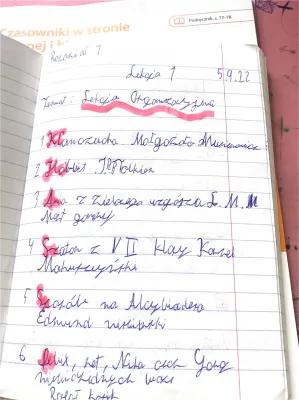 Czasowniki w stronie
Podręcznik, s. 77-78.
Rozdział 1
Lekcja 1 5.9.22
Temat: Lekcja Organizacyjna
1 Klamczucha Małgorzata Musierowicz
2 Hobbit
3 Ana z Zielonego wzgórza L. M.
4 Szatan z VII klasy Kornel
Makuszyński
5 Sposób na Alcybiadesa
Edmund Niziurski
6 Felix, Net, Nika oraz Gang
niewidzialnych ludzi
Rafał Kosik